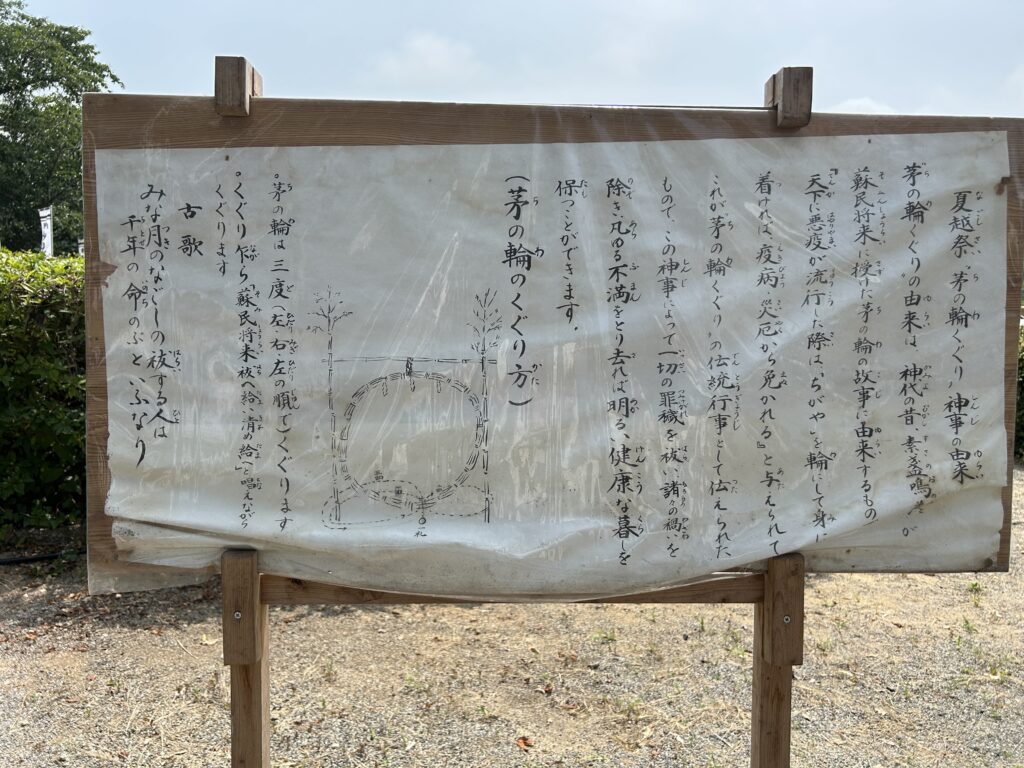 夏越祭〝茅の輪くぐり〟神事の由来
茅の輪くぐり〟の由来は、神代の昔、素盞鳴尊が
蘇民将来に授けた茅の輪の故事に由来するもの
天下に悪疫が流行した際は、ちがやを輪にして身に
着ければ疫病、災厄、から免かれる』と与えられて
これが茅の輪くぐり〟の伝統行事として伝えられた
もので、この神事によって一切の罪穢を祓い諸々の禍いを
除き、凡ゆる不満をとり去れば明るい健康な暮しを
保つことができます。
(茅の輪のくぐり方)
礼
○茅の輪は三度(左・右・左の順で)くぐります
○くぐり乍ら「蘇民将来祓へ給へ清め給へ」と唱えながら
くぐります
古歌
みな月のなごしの祓する人は
千年の命のぶとふなり